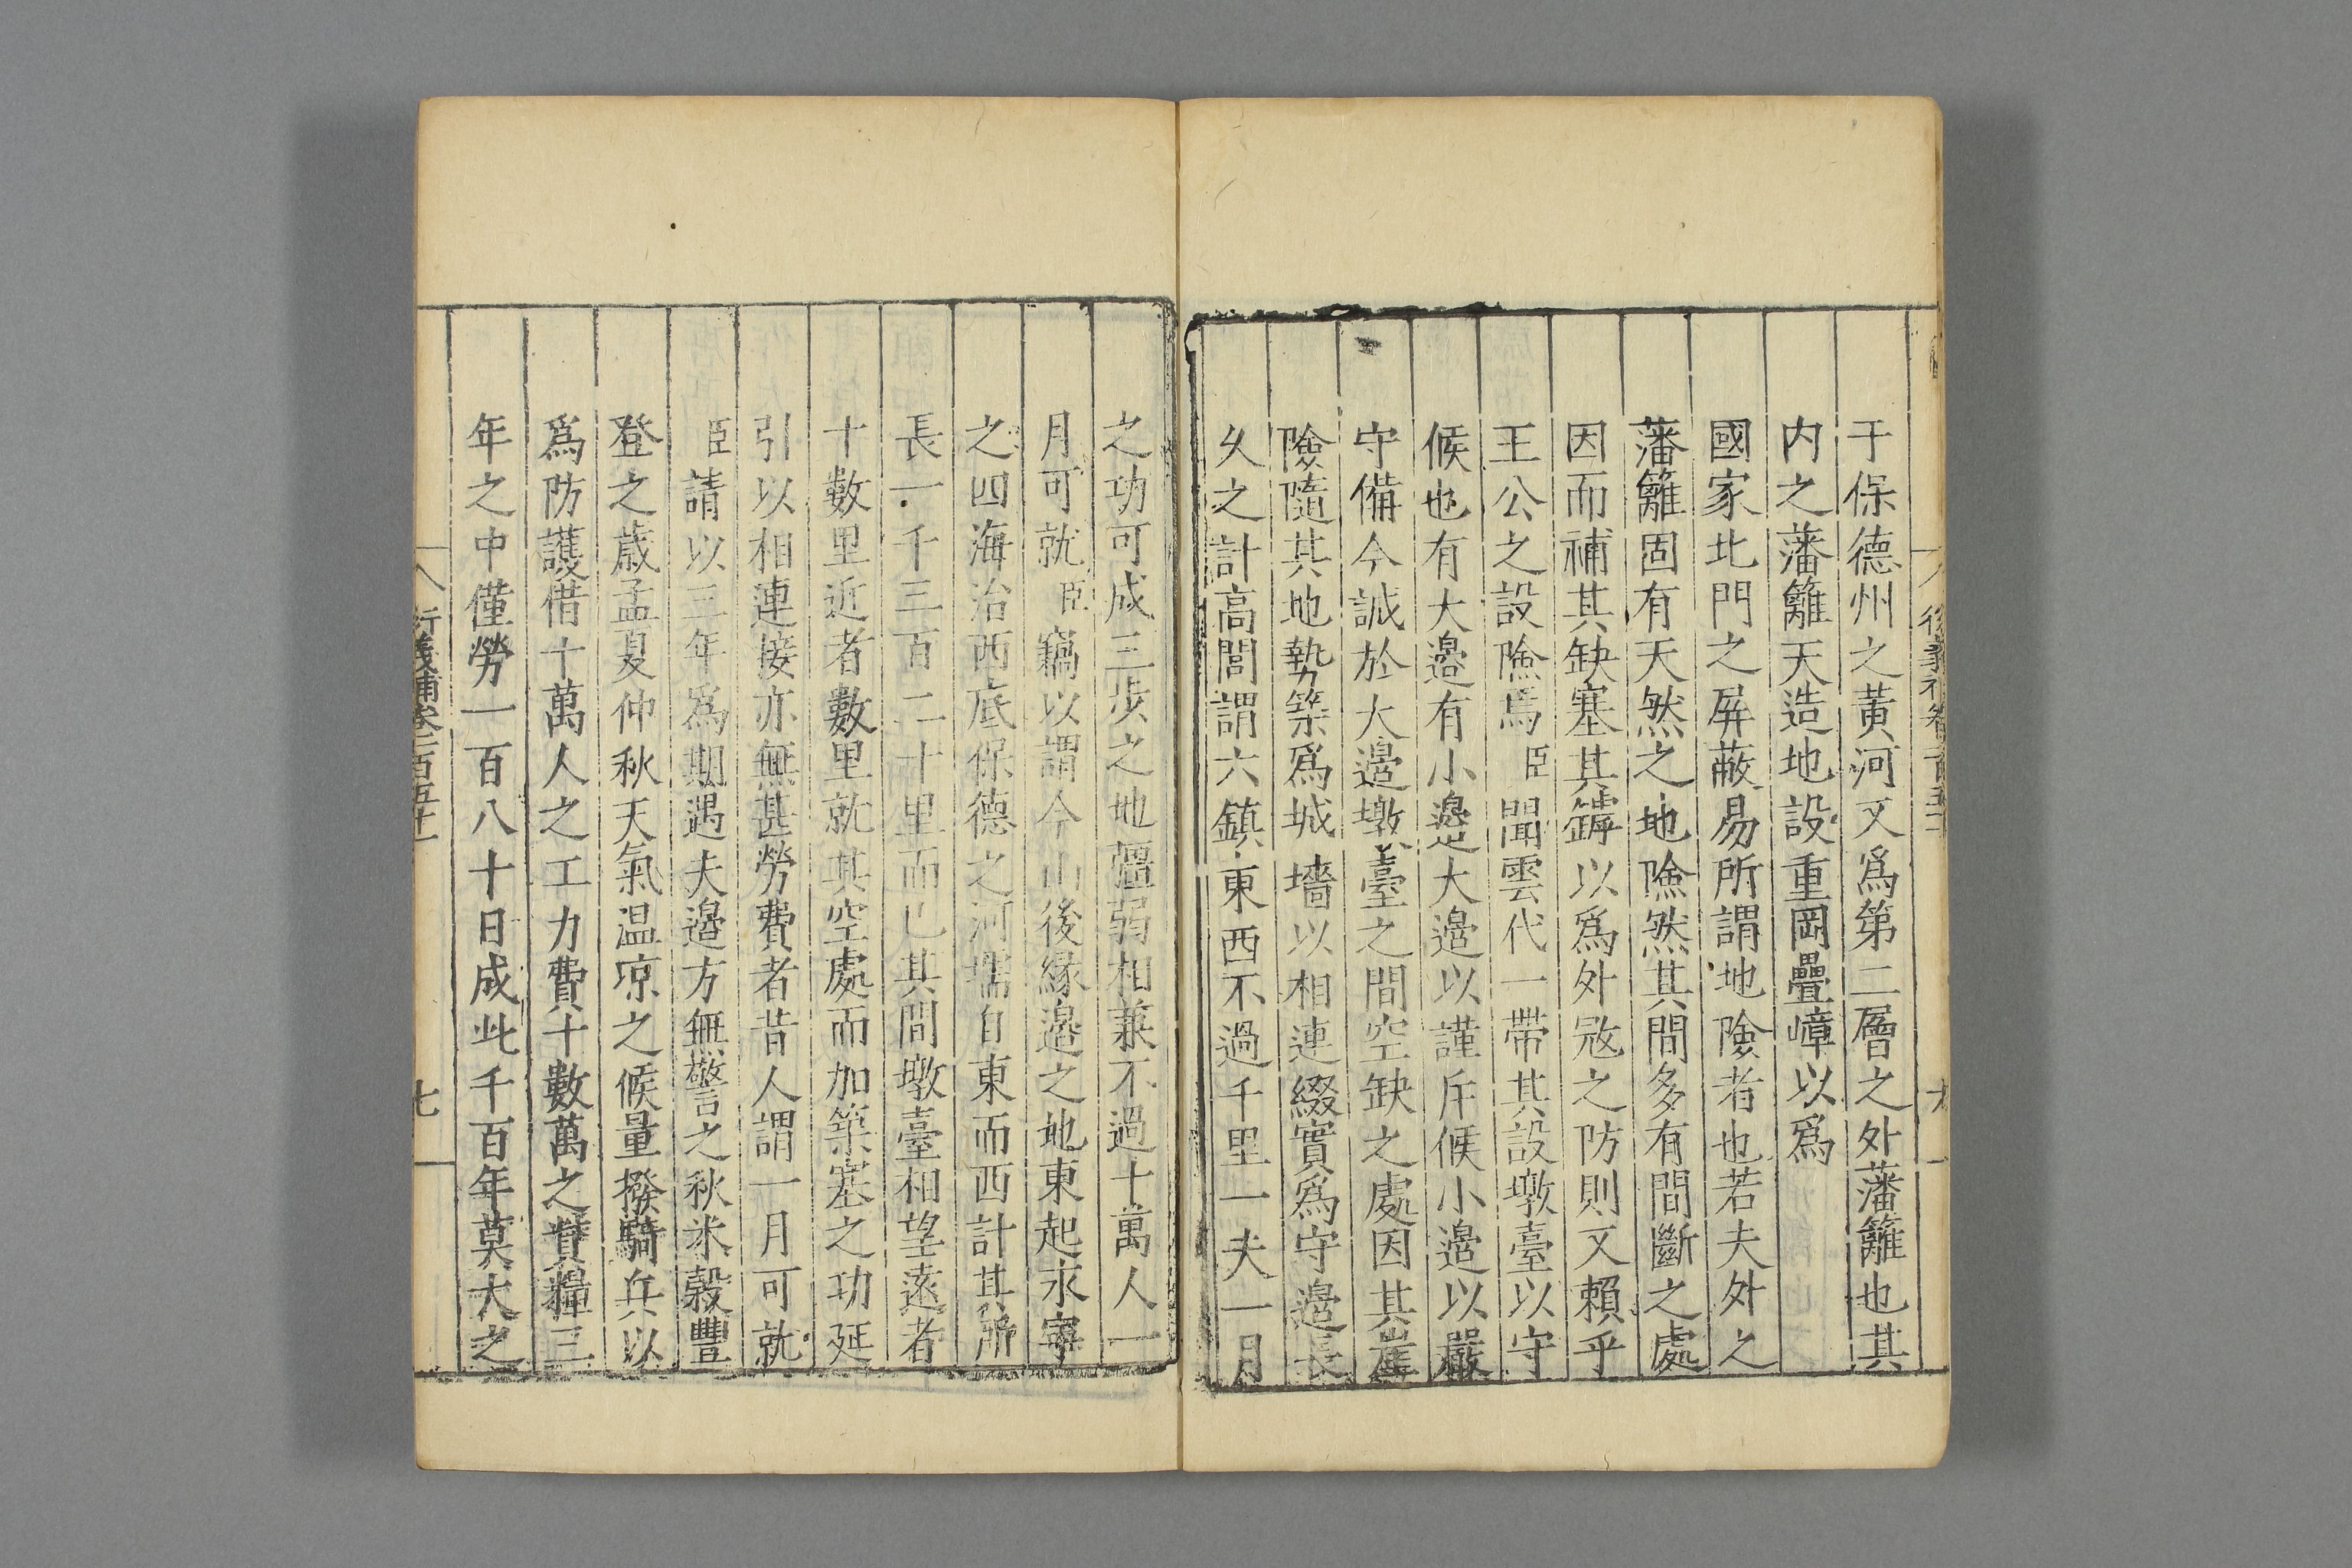 于保德州之黃河又爲第二層之外藩籬也其
内之藩籬天造地設重岡疊嶂以爲
國家北門之屏蔽易所謂地險者也若夫外之
藩籬固有天然之地險然其間多有間斷之處
因而補其缺塞其罅以爲外寇之防則又賴乎
王公之設險焉臣聞雲代一帶其設墩臺以守
候也有大邉有小邉大邉以謹斥候小邉以嚴
守備今誠於大邉墩臺之間空缺之處因其崖
險隨其地勢築爲城墻以相連綴實爲守邉長
乆之計高閭謂六鎮東西不過千里一夫一月
之功可成三步之地彊弱相兼不過十萬人一
月可就臣竊以謂今山後緣邉之地東起永寧
之四海治西底保德之河壖自東而西計其所
長一千三百二十里而已其間墩臺相望遠者
十數里近者數里就其空處而加築塞之功延
引以相連接亦無甚勞費者昔人謂一月可就
臣請以三年爲期遇夫邉方無警之秋米穀豐
登之歲孟夏仲秋天氣温凉之候量撥騎兵以
爲防護借十萬人之工力費十數萬之貲糧三
年之中僅勞一百八十日成此千百年莫大之
衍義補卷一百五十一
七